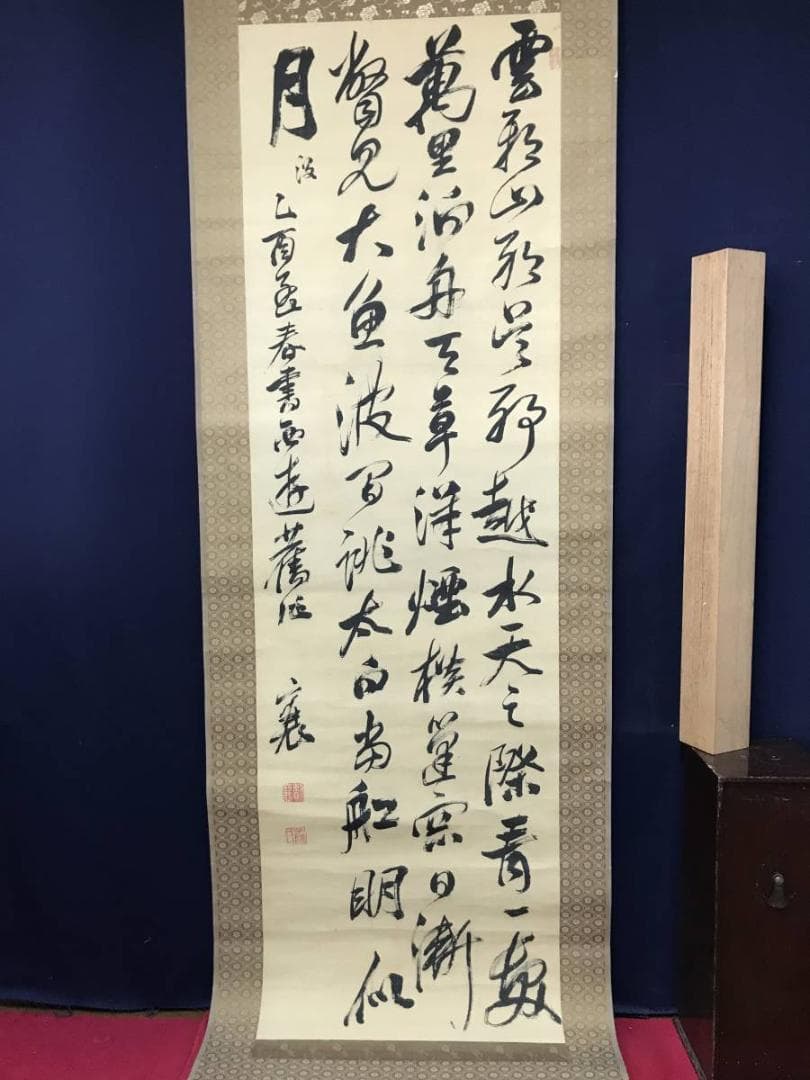 雲耶山耶呉耶越水天之際青一髪
萬里泊舟天草洋煙横篷窓日漸
瞥見大魚波間跳太白當船明似
月 没 乙酉孟春書西遊舊作 襄